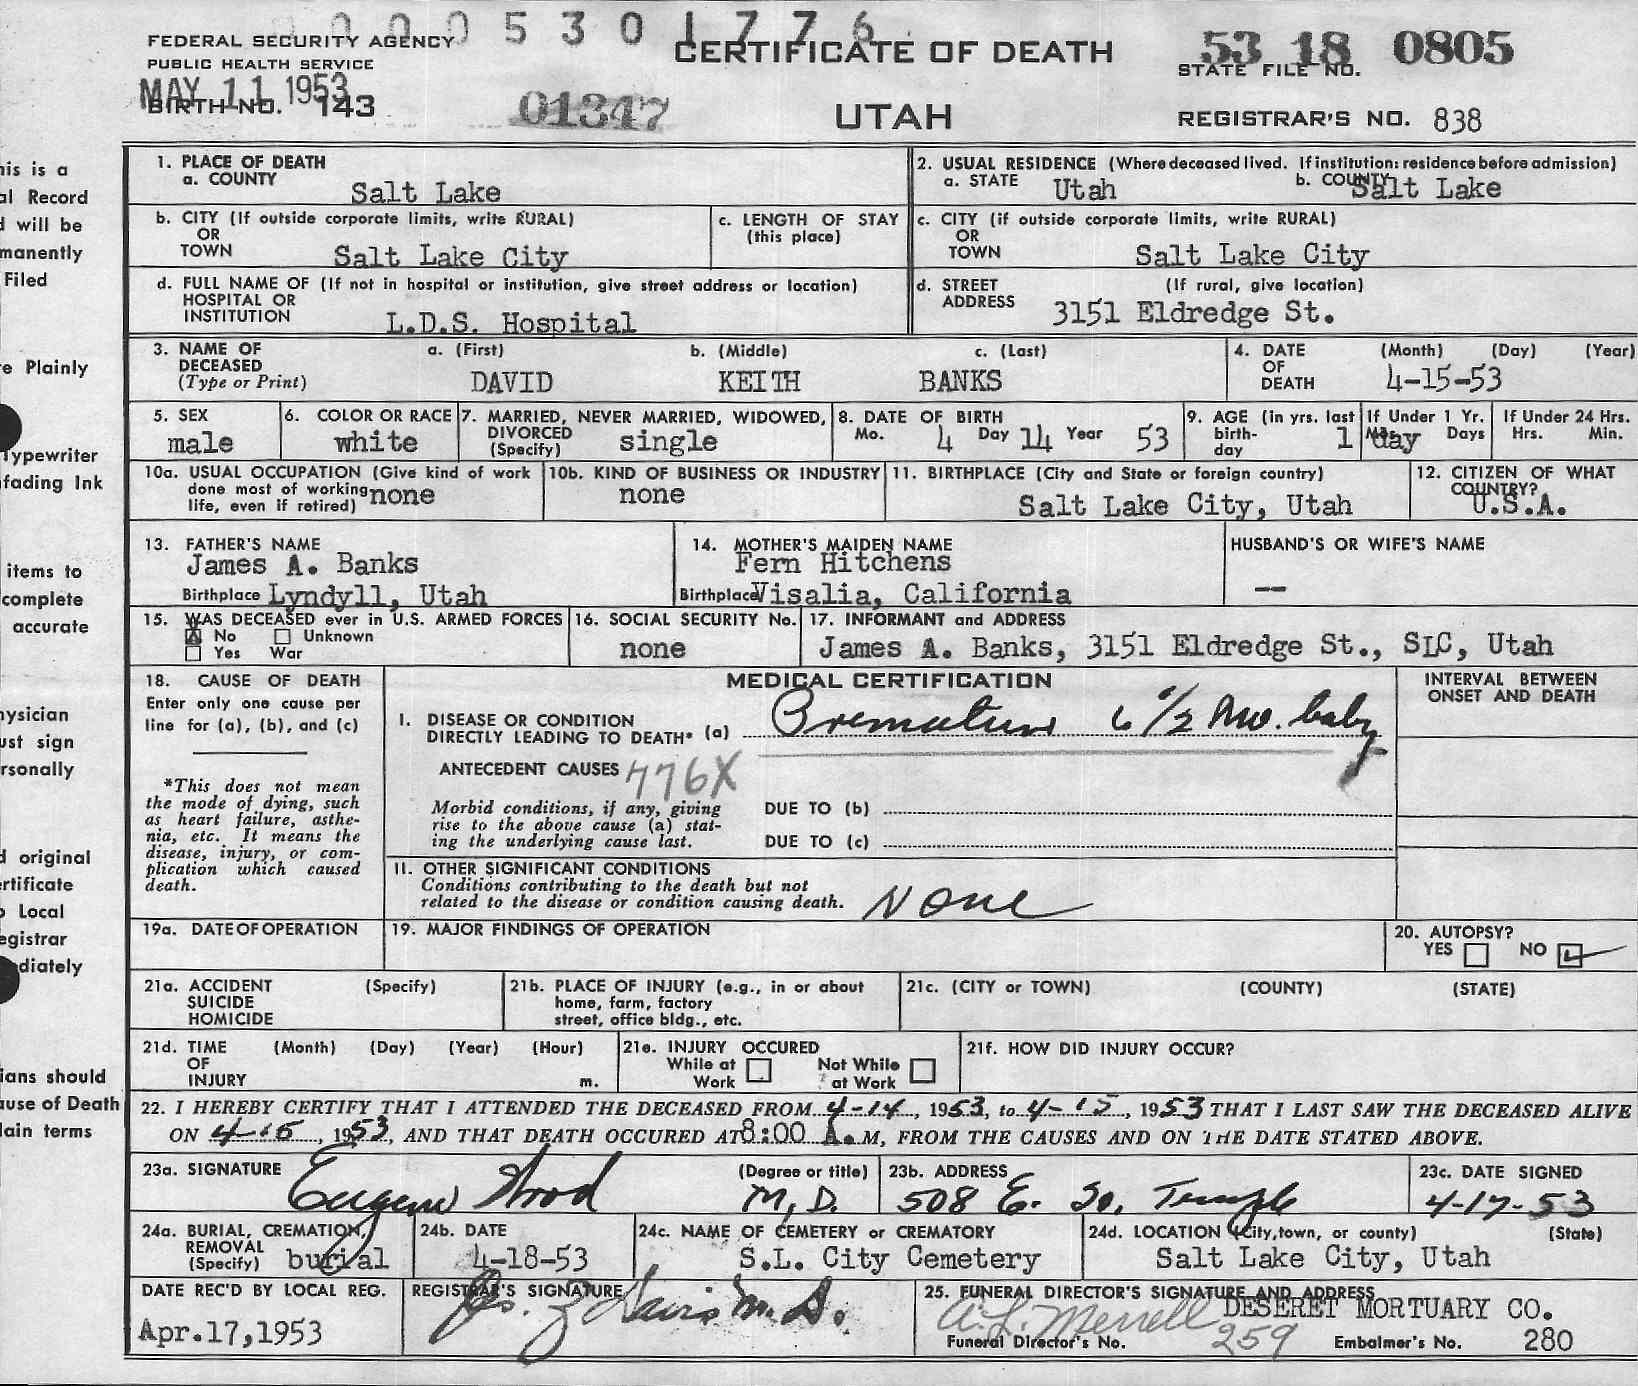 0 0 0 0 5 3 0 1 7 7 6
FEDERAL SECURITY AGENCY
PUBLIC HEALTH SERVICE
MAY 11 1953
BIRTH NO. 143
01347
CERTIFICATE OF DEATH
UTAH
53 18 0805
STATE FILE NO.
REGISTRAR'S NO. 838
his is a
al Record
d will be
manently
Filed
e Plainly
Typewriter
fading Ink
items to
complete
accurate
hysician
ust sign
rsonally
d original
ertificate
o Local
egistrar
diately
ians should
ause of Death
lain terms
1. PLACE OF DEATH
a. COUNTY Salt Lake
2. USUAL RESIDENCE (Where deceased lived. If institution: residence before admission)
a. STATE Utah b. COUNTY Salt Lake
b. CITY (If outside corporate limits, write RURAL)
OR
TOWN Salt Lake City
c. LENGTH OF STAY
(this place)
c. CITY (if outside corporate limits, write RURAL)
OR
TOWN Salt Lake City
d. FULL NAME OF (If not in hospital or institution, give street address or location)
HOSPITAL OR
INSTITUTION L.D.S. Hospital
d. STREET (If rural, give location)
ADDRESS 3151 Eldredge St.
3. NAME OF a. (First) b. (Middle) c. (Last)
DECEASED
(Type or Print) DAVID KEITH BANKS
4. DATE (Month) (Day) (Year)
OF
DEATH 4-15-53
5. SEX
male
6. COLOR OR RACE
white
7. MARRIED, NEVER MARRIED, WIDOWED,
DIVORCED
(Specify) single
8. DATE OF BIRTH
Mo. 4 Day 14 Year 53
9. AGE (in yrs. last
birth-
day 1 day
If Under 1 Yr.
Days
If Under 24 Hrs.
Hrs. Min.
10a. USUAL OCCUPATION (Give kind of work
done most of working
life, even if retired) none
10b. KIND OF BUSINESS OR INDUSTRY
none
11. BIRTHPLACE (City and State or foreign country)
Salt Lake City, Utah
12. CITIZEN OF WHAT
COUNTRY?
U.S.A.
13. FATHER'S NAME
James A. Banks
Birthplace Lyndyll, Utah
14. MOTHER'S MAIDEN NAME
Fern Hitchens
Birthplace Visalia, California
HUSBAND'S OR WIFE'S NAME
--
15. WAS DECEASED ever in U.S. ARMED FORCES
No Unknown
Yes War
16. SOCIAL SECURITY No.
none
17. INFORMANT and ADDRESS
James A. Banks, 3151 Eldredge St., SLC, Utah
18. CAUSE OF DEATH
Enter only one cause per
line for (a), (b), and (c)
*This does not mean
the mode of dying, such
as heart failure, asthe-
nia, etc. It means the
disease, injury, or com-
plication which caused
death.
MEDICAL CERTIFICATION
INTERVAL BETWEEN
ONSET AND DEATH
I. DISEASE OR CONDITION
DIRECTLY LEADING TO DEATH* (a) Premature 6 1/2 mo. baby
ANTECEDENT CAUSES 776X
Morbid conditions, if any, giving
rise to the above cause (a) stat-
ing the underlying cause last.
DUE TO (b)
DUE TO (c)
II. OTHER SIGNIFICANT CONDITIONS
Conditions contributing to the death but not
related to the disease or condition causing death. None
19a. DATE OF OPERATION
19. MAJOR FINDINGS OF OPERATION
20. AUTOPSY?
YES NO
21a. ACCIDENT (Specify)
SUICIDE
HOMICIDE
21b. PLACE OF INJURY (e.g., in or about
home, farm, factory
street, office bldg., etc.
21c. (CITY or TOWN) (COUNTY) (STATE)
21d. TIME (Month) (Day) (Year) (Hour)
OF
INJURY m.
21e. INJURY OCCURED
While at Not While
Work at Work
21f. HOW DID INJURY OCCUR?
22. I HEREBY CERTIFY THAT I ATTENDED THE DECEASED FROM 4-14, 1953, to 4-15, 1953 THAT I LAST SAW THE DECEASED ALIVE
ON 4-15, 1953, AND THAT DEATH OCCURED AT 8:00 A.M, FROM THE CAUSES AND ON THE DATE STATED ABOVE.
23a. SIGNATURE (Degree or title)
Eugene Wood M.D.
23b. ADDRESS
508 E. So. Temple
23c. DATE SIGNED
4-17-53
24a. BURIAL, CREMATION,
REMOVAL
(Specify) burial
24b. DATE
4-18-53
24c. NAME OF CEMETERY or CREMATORY
S.L. City Cemetery
24d. LOCATION (City, town, or county) (State)
Salt Lake City, Utah
DATE REC'D BY LOCAL REG.
Apr.17,1953
REGISTRAR'S SIGNATURE
Davis M.D.
25. FUNERAL DIRECTOR'S SIGNATURE AND ADDRESS
A.L. Merrell DESERET MORTUARY CO.
Funeral Director's No. 259 Embalmer's No. 280